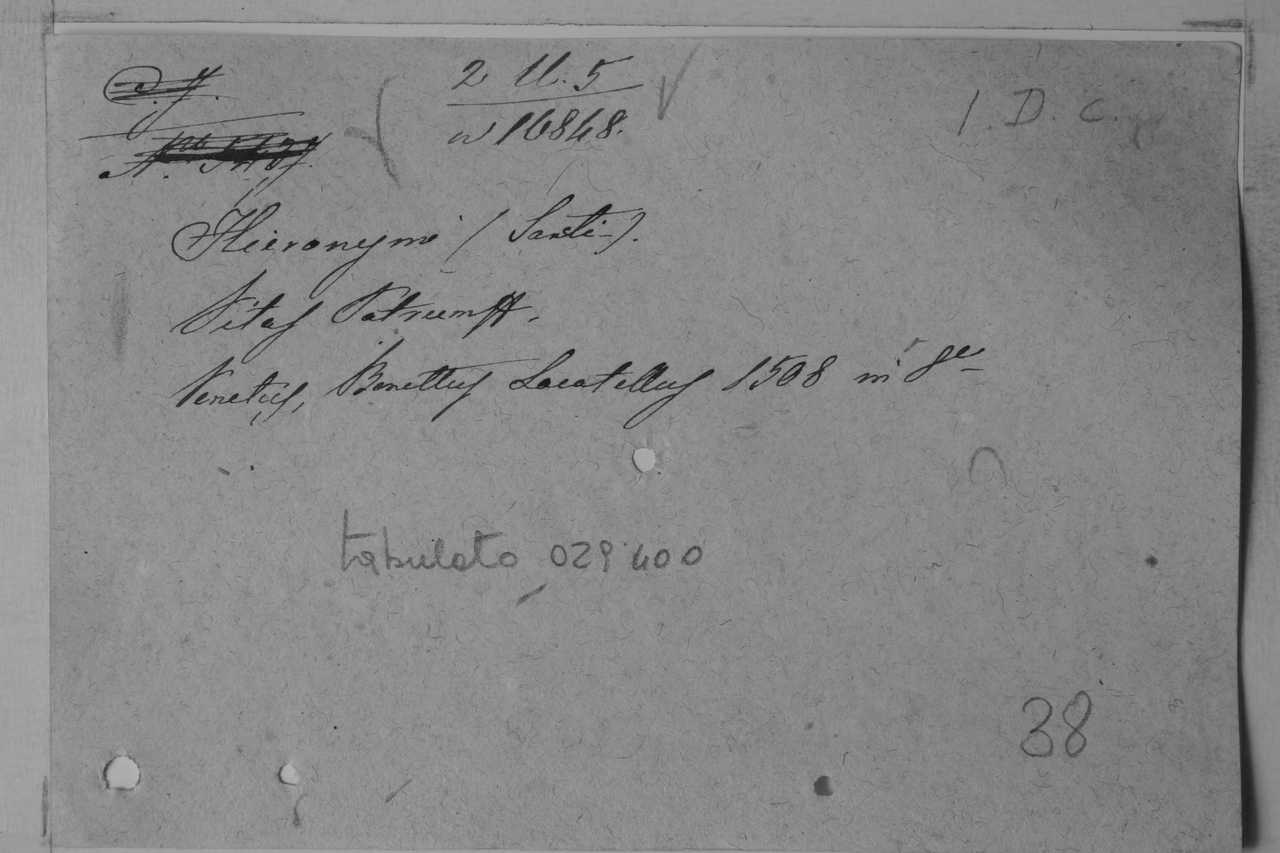 2 U. 5
n 16848.
I. D. C.
Hieronymi (Santi-).
Vitas Patrum
Venetus, Benettus Locatellus 1508 in 8°
tabulato 029400
38